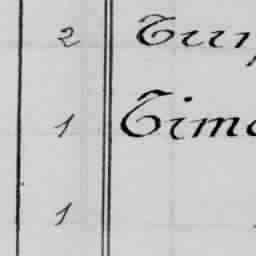 2 Tur
1 Timo
1